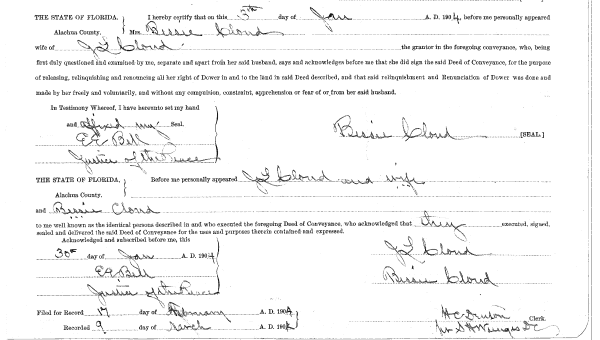 THE STATE OF FLORIDA. } I hereby certify that on this 5th day of Jan A. D. 1904, before me personally appeared
Alachua County. Mrs. Bessie Cloud
wife of J L Cloud the grantor in the foregoing conveyance, who, being
first duly questioned and examined by me, separate and apart from her said husband, says and acknowledges before me that she did sign the said Deed of Conveyance, for the purpose
of releasing, relinquishing and renouncing all her right of Dower in and to the land in said Deed described, and that said relinquishment and Renunciation of Dower was done and
made by her freely and voluntarily, and without any compulsion, constraint, apprehension or fear of or from her said husband.
In Testimony Whereof, I have hereunto set my hand
and affixed my Seal.
E E Bell
Bessie Cloud [SEAL.]
Justice of the Peace
THE STATE OF FLORIDA. } Before me personally appeared J L Cloud and wife
Alachua County.
and Bessie Cloud
to me well known as the identical persons described in and who executed the foregoing Deed of Conveyance, who acknowledged that they executed, signed,
sealed and delivered the said Deed of Conveyance for the uses and purposes therein contained and expressed.
Acknowledged and subscribed before me, this
30th day of Jan A. D. 1904
J L Cloud
E E Bell
Bessie Cloud
Justice of the Peace
Filed for Record 17 day of February A. D. 1904
Recorded 9 day of March A. D. 1904 Clerk.